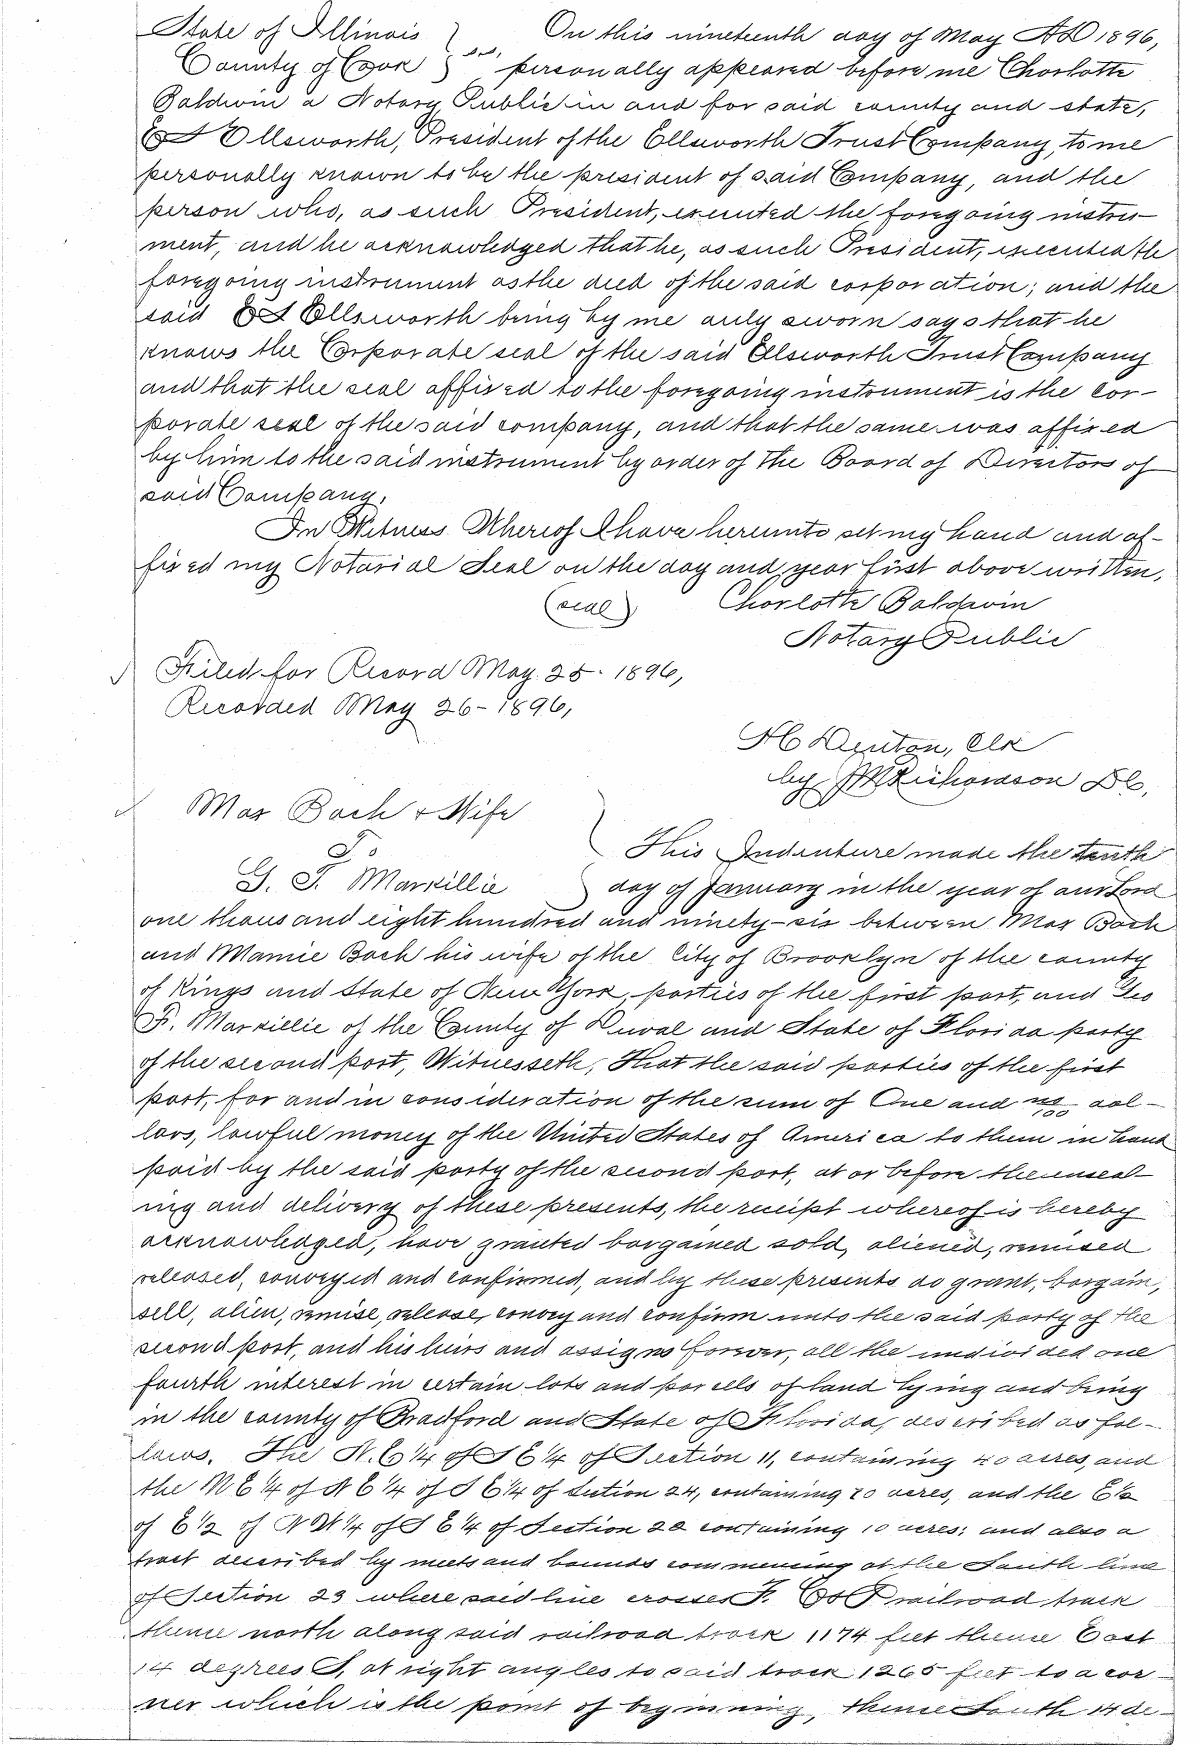 State of Illinois } On this nineteenth day of May AD 1896,
County of Cook } ss, personally appeared before me Charlotte
Baldwin a Notary Public in and for said county and state,
Ellsworth, President of the Ellsworth Trust Company, to me
personally known to be the president of said Company, and the
person who, as such President, executed the foregoing instru-
ment, and he acknowledged that he, as such President, executed the
foregoing instrument as the deed of the said corporation; and the
said Ellsworth being by me duly sworn says that he
knows the Corporate seal of the said Ellsworth Trust Company
and that the seal affixed to the foregoing instrument is the cor-
porate seal of the said company, and that the same was affixed
by him to the said instrument by order of the Board of Directors of
said Company.
In Witness Whereof I have hereunto set my hand and af-
fixed my Notarial Seal on the day and year first above written.
(seal) Charlotte Baldwin
Notary Public
Filed for Record May 25- 1896,
Recorded May 26- 1896,
Denton, Clk
by JM Richardson DC,
Max Bach & Wife
To
G. F. Markillie
This Indenture made the tenth
day of January in the year of our Lord
one thousand eight hundred and ninety-six between Max Bach
and Mamie Bach his wife of the City of Brooklyn of the county
of Kings and State of New York, parties of the first part, and Geo
F. Markillie of the County of Duval and State of Florida party
of the second part, Witnesseth, That the said parties of the first
part, for and in consideration of the sum of One and no/100 dol-
lars, lawful money of the United States of America to them in hand
paid by the said party of the second part, at or before the enseal-
ing and delivery of these presents, the receipt whereof is hereby
acknowledged, have granted bargained sold, aliened, remised
released, conveyed and confirmed, and by these presents do grant, bargain,
sell, alien, remise, release, convey and confirm unto the said party of the
second part, and his heirs and assigns forever, all the undivided one
fourth interest in certain lots and parcels of land lying and being
in the county of Bradford and State of Florida, described as fol-
lows. The N.E 1/4 of S E 1/4 of Section 11, containing 40 acres, and
the N E 1/4 of N E 1/4 of S E 1/4 of Section 24, containing 10 acres, and the E 1/2
of E 1/2 of N W 1/4 of S E 1/4 of Section containing 10 acres; and also a
tract described by meets and bounds commencing at the South line
of Section 23 where said line crosses F. C & P railroad track
thence north along said railroad track 1174 feet thence East
14 degrees S, at right angles to said track 1265 feet to a cor-
ner which is the point of beginning, thence South 14 de-